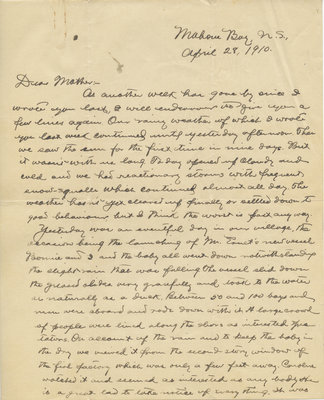 Mahone Bay, N.S.,
April 23, 1910.
Dear Mother:-
As another week has gone by since I
wrote you last, I will endeavour to give you a
few lines again. Our rainy weather of which I wrote
you last week continued until yesterday afternoon then
we saw the sun for the first time in nine days. But
it wasn't with us long. To day opened up cloudy and
cold and we had reactionary storms with frequent
snow squalls which continued almost all day. The
weather has not yet cleared up finally or settled down to
good behaviour but I think the worst is past any way.
Yesterday was an eventful day in our village, the
occasion being the launching of Mr. new vessel
Bonnie and I and the baby all went down notwithstanding
the slight rain that was falling the vessel slid down
the greased slides very gracefully and took to the water
as naturally as a duck. Between 50 and 100 boys and
men were aboard and rode down with it. A large crowd
of people were lined along the shore as interested spec-
tators. On account of the rain and to keep the baby in
the dry we viewed it from the second story window of
the fish factory which was only a few feet away. Caroline
watched it and seemed as interested as any body. She
is a great lad to take notice of every thing. It was